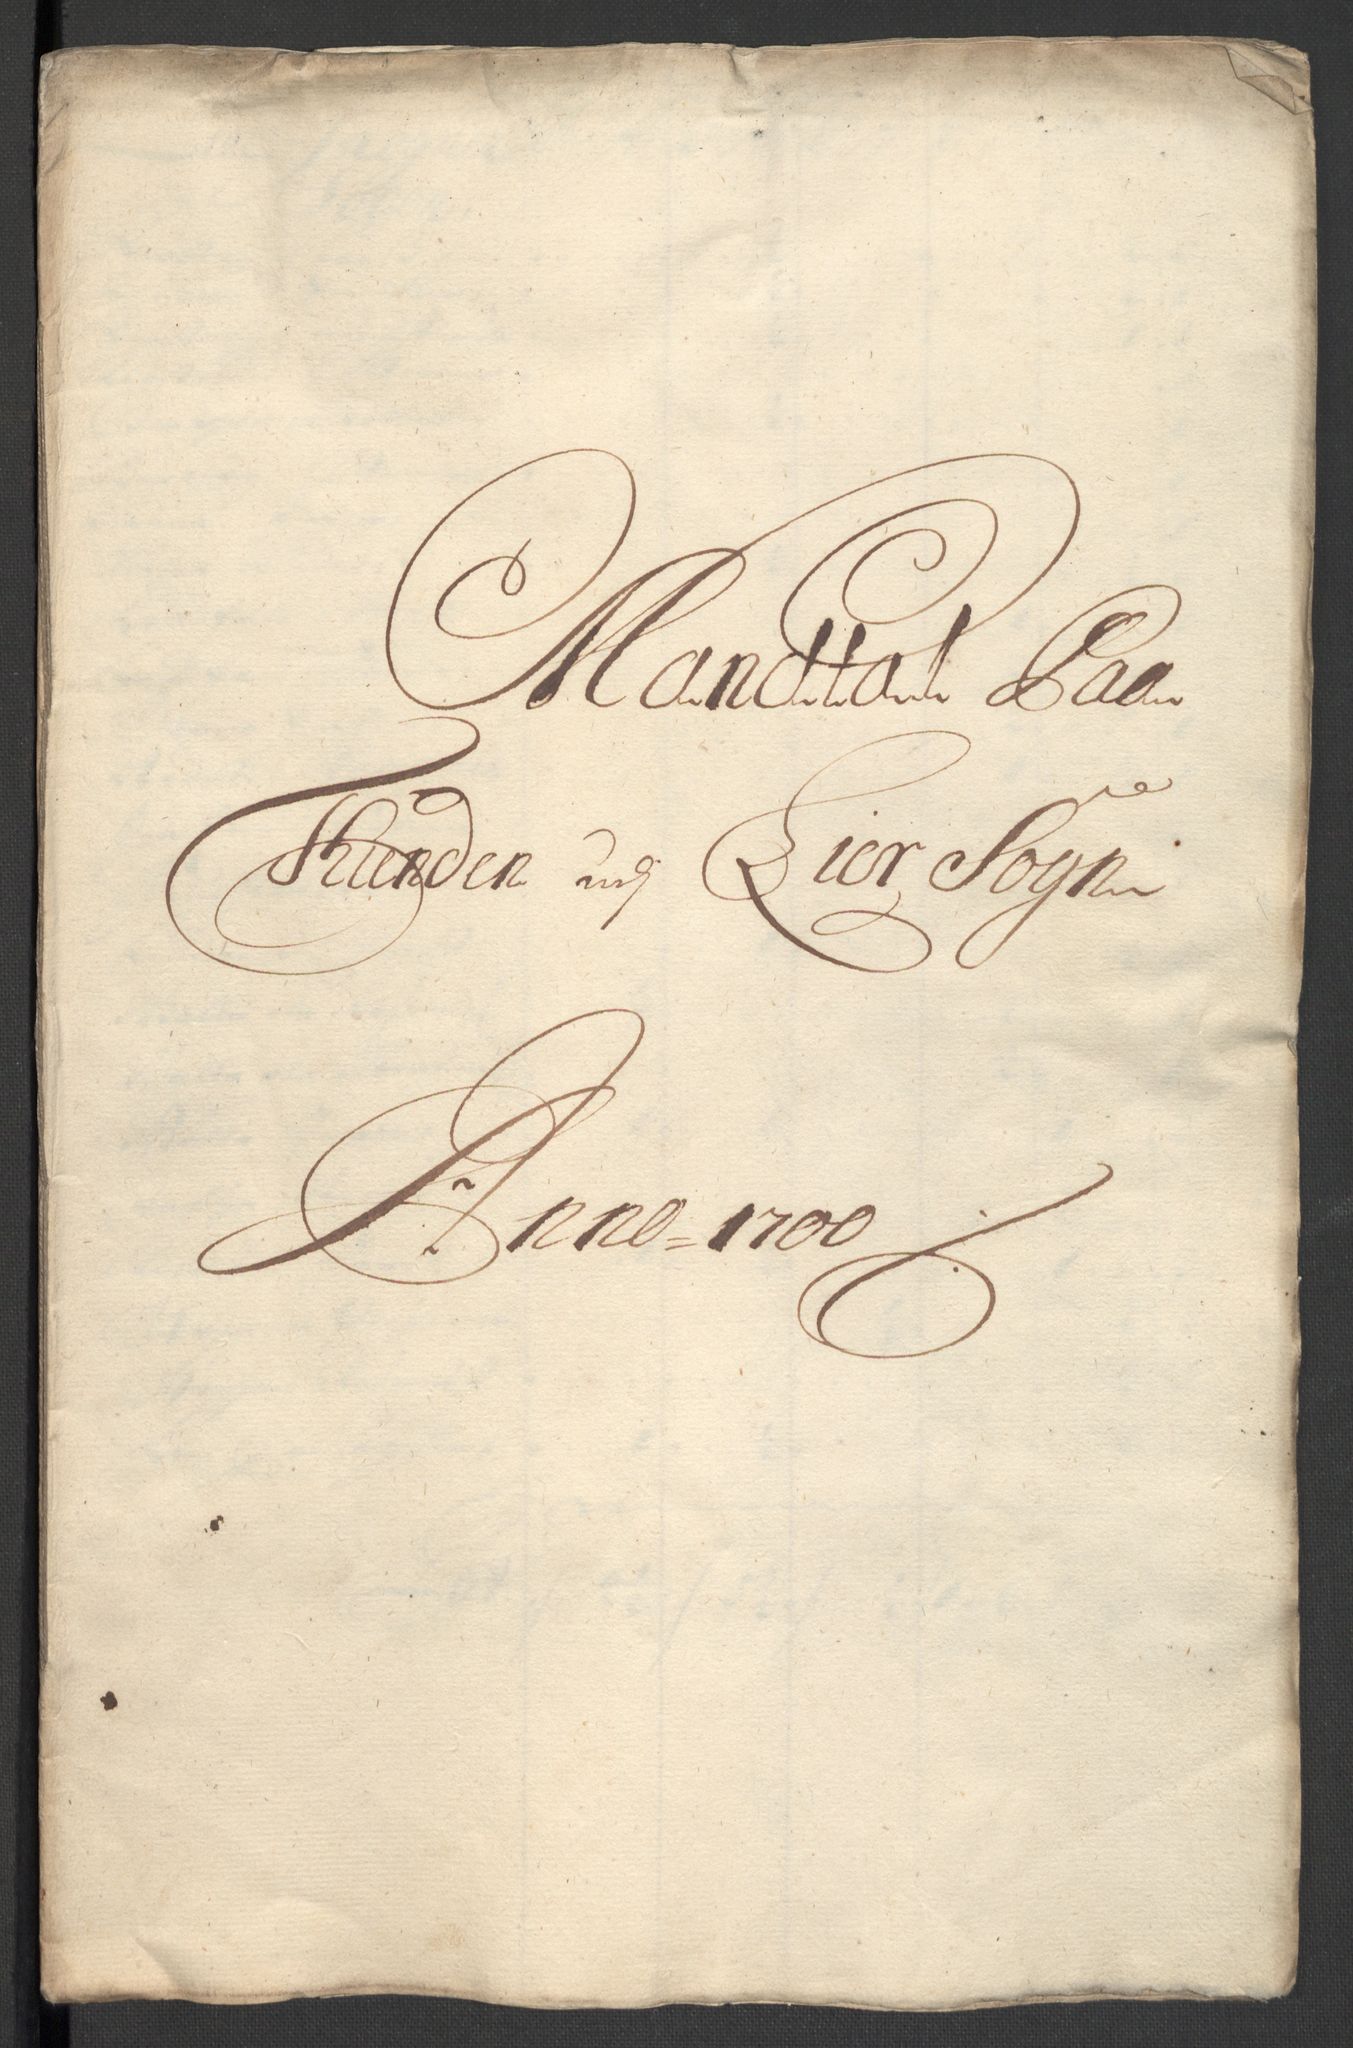 Mandtal Paa
Thienden udj Lier Sogn
Anno = 1700